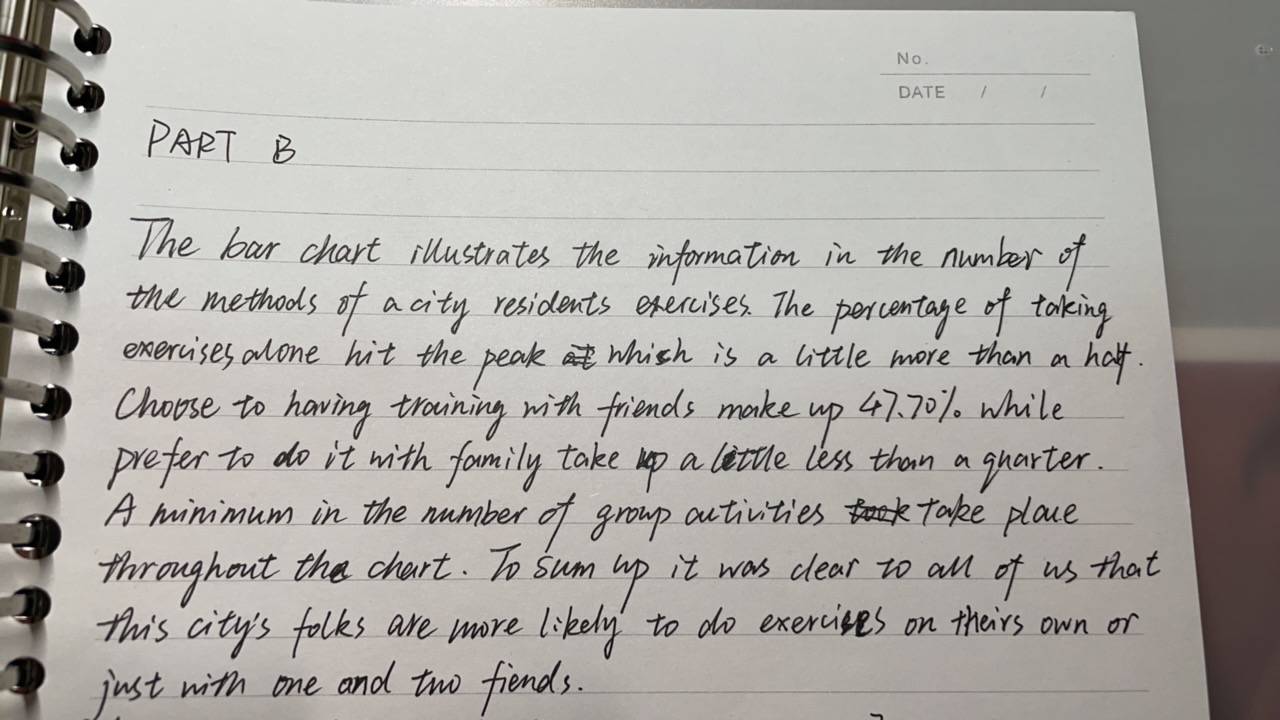 No.
DATE / /
PART B
The bar chart illustrates the information in the number of
the methods of a city residents exercises. The percentage of taking
exercises alone hit the peak at which is a little more than a half.
Choose to having training with friends make up 47.70% while
prefer to do it with family take up a little less than a quarter.
A minimum in the number of group activities took take place
throughout the chart. To sum up it was clear to all of us that
this city's folks are more likely to do exercises on theirs own or
just with one and two fiends.